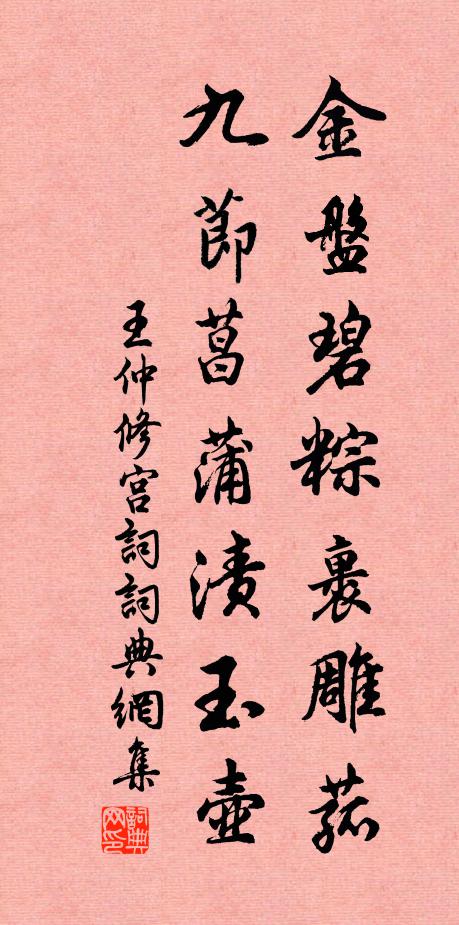 金盤碧粽裹雕菰
九節菖蒲漬玉壺
王仲修宮詞詞典網集
詞典网印